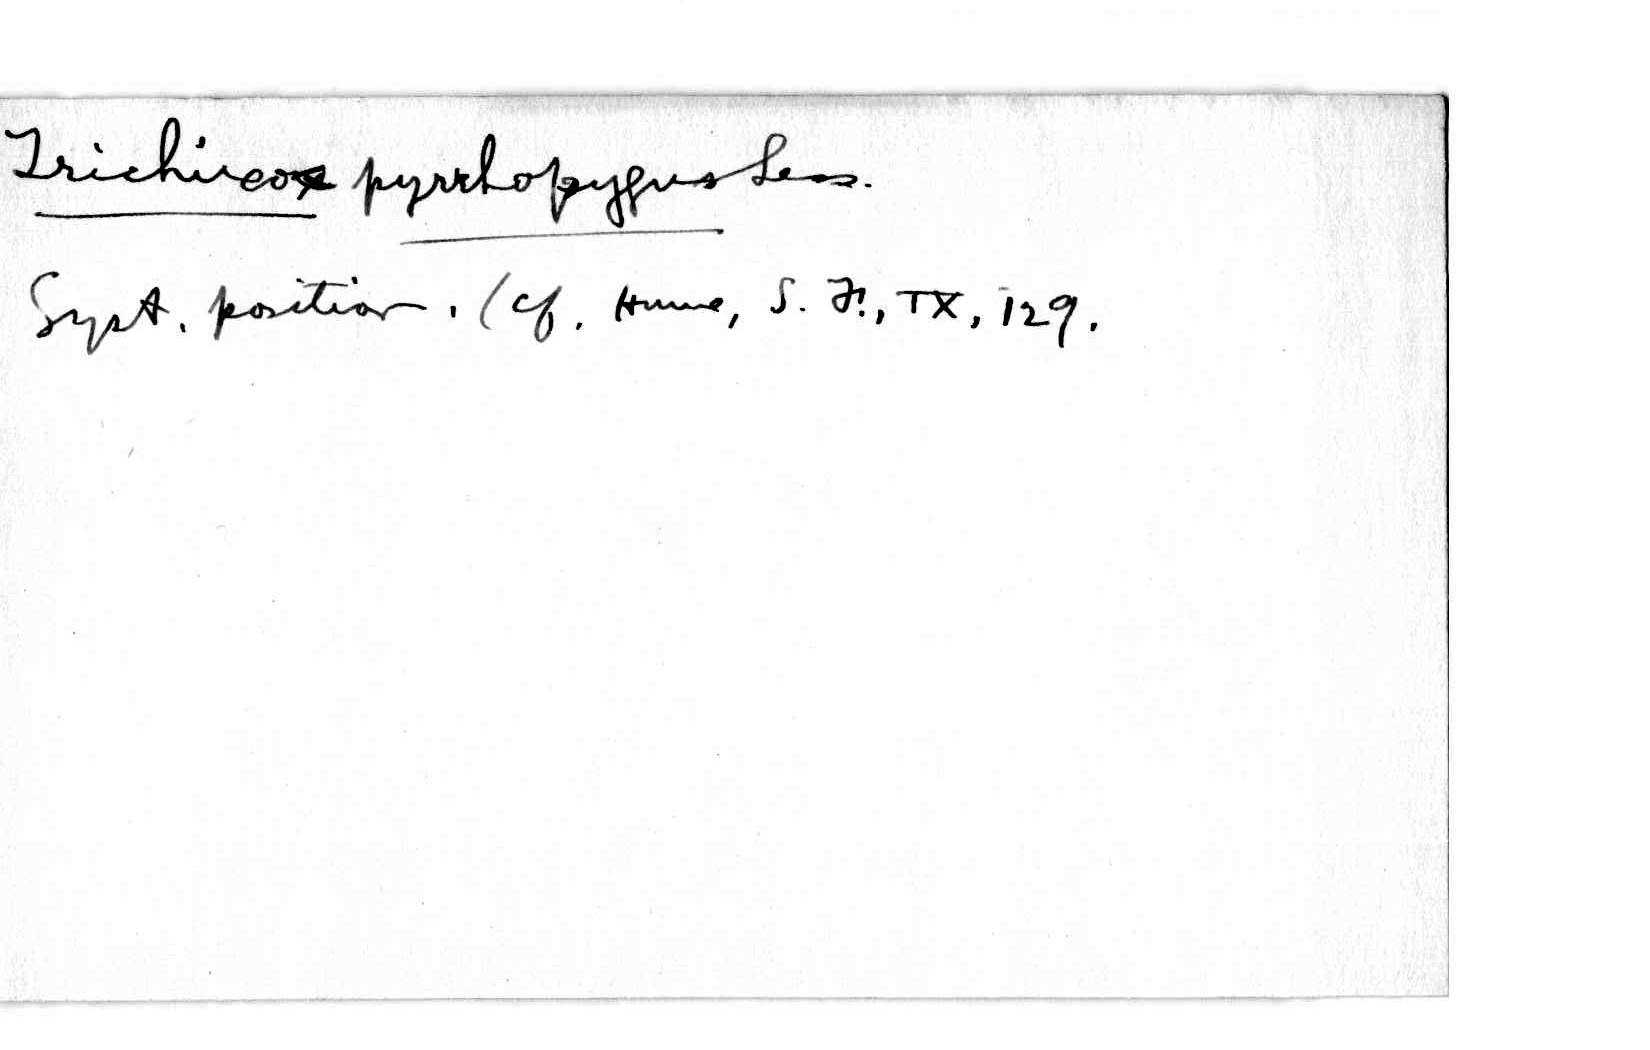 Trichixos pyrrhopygus Less.
Syst. position. (cf. Hume, S. F., IX, 129.